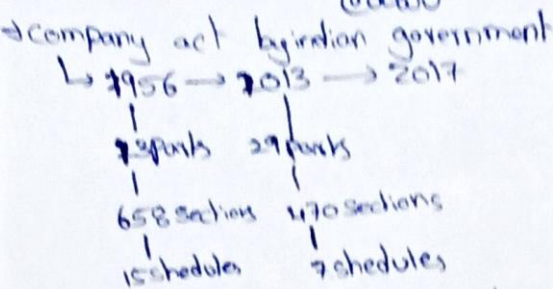 → company act by indian government
↳ 1956 → 2013 → 2017
13 parts 29 parts
658 sections 470 sections
15 shedules 7 shedules